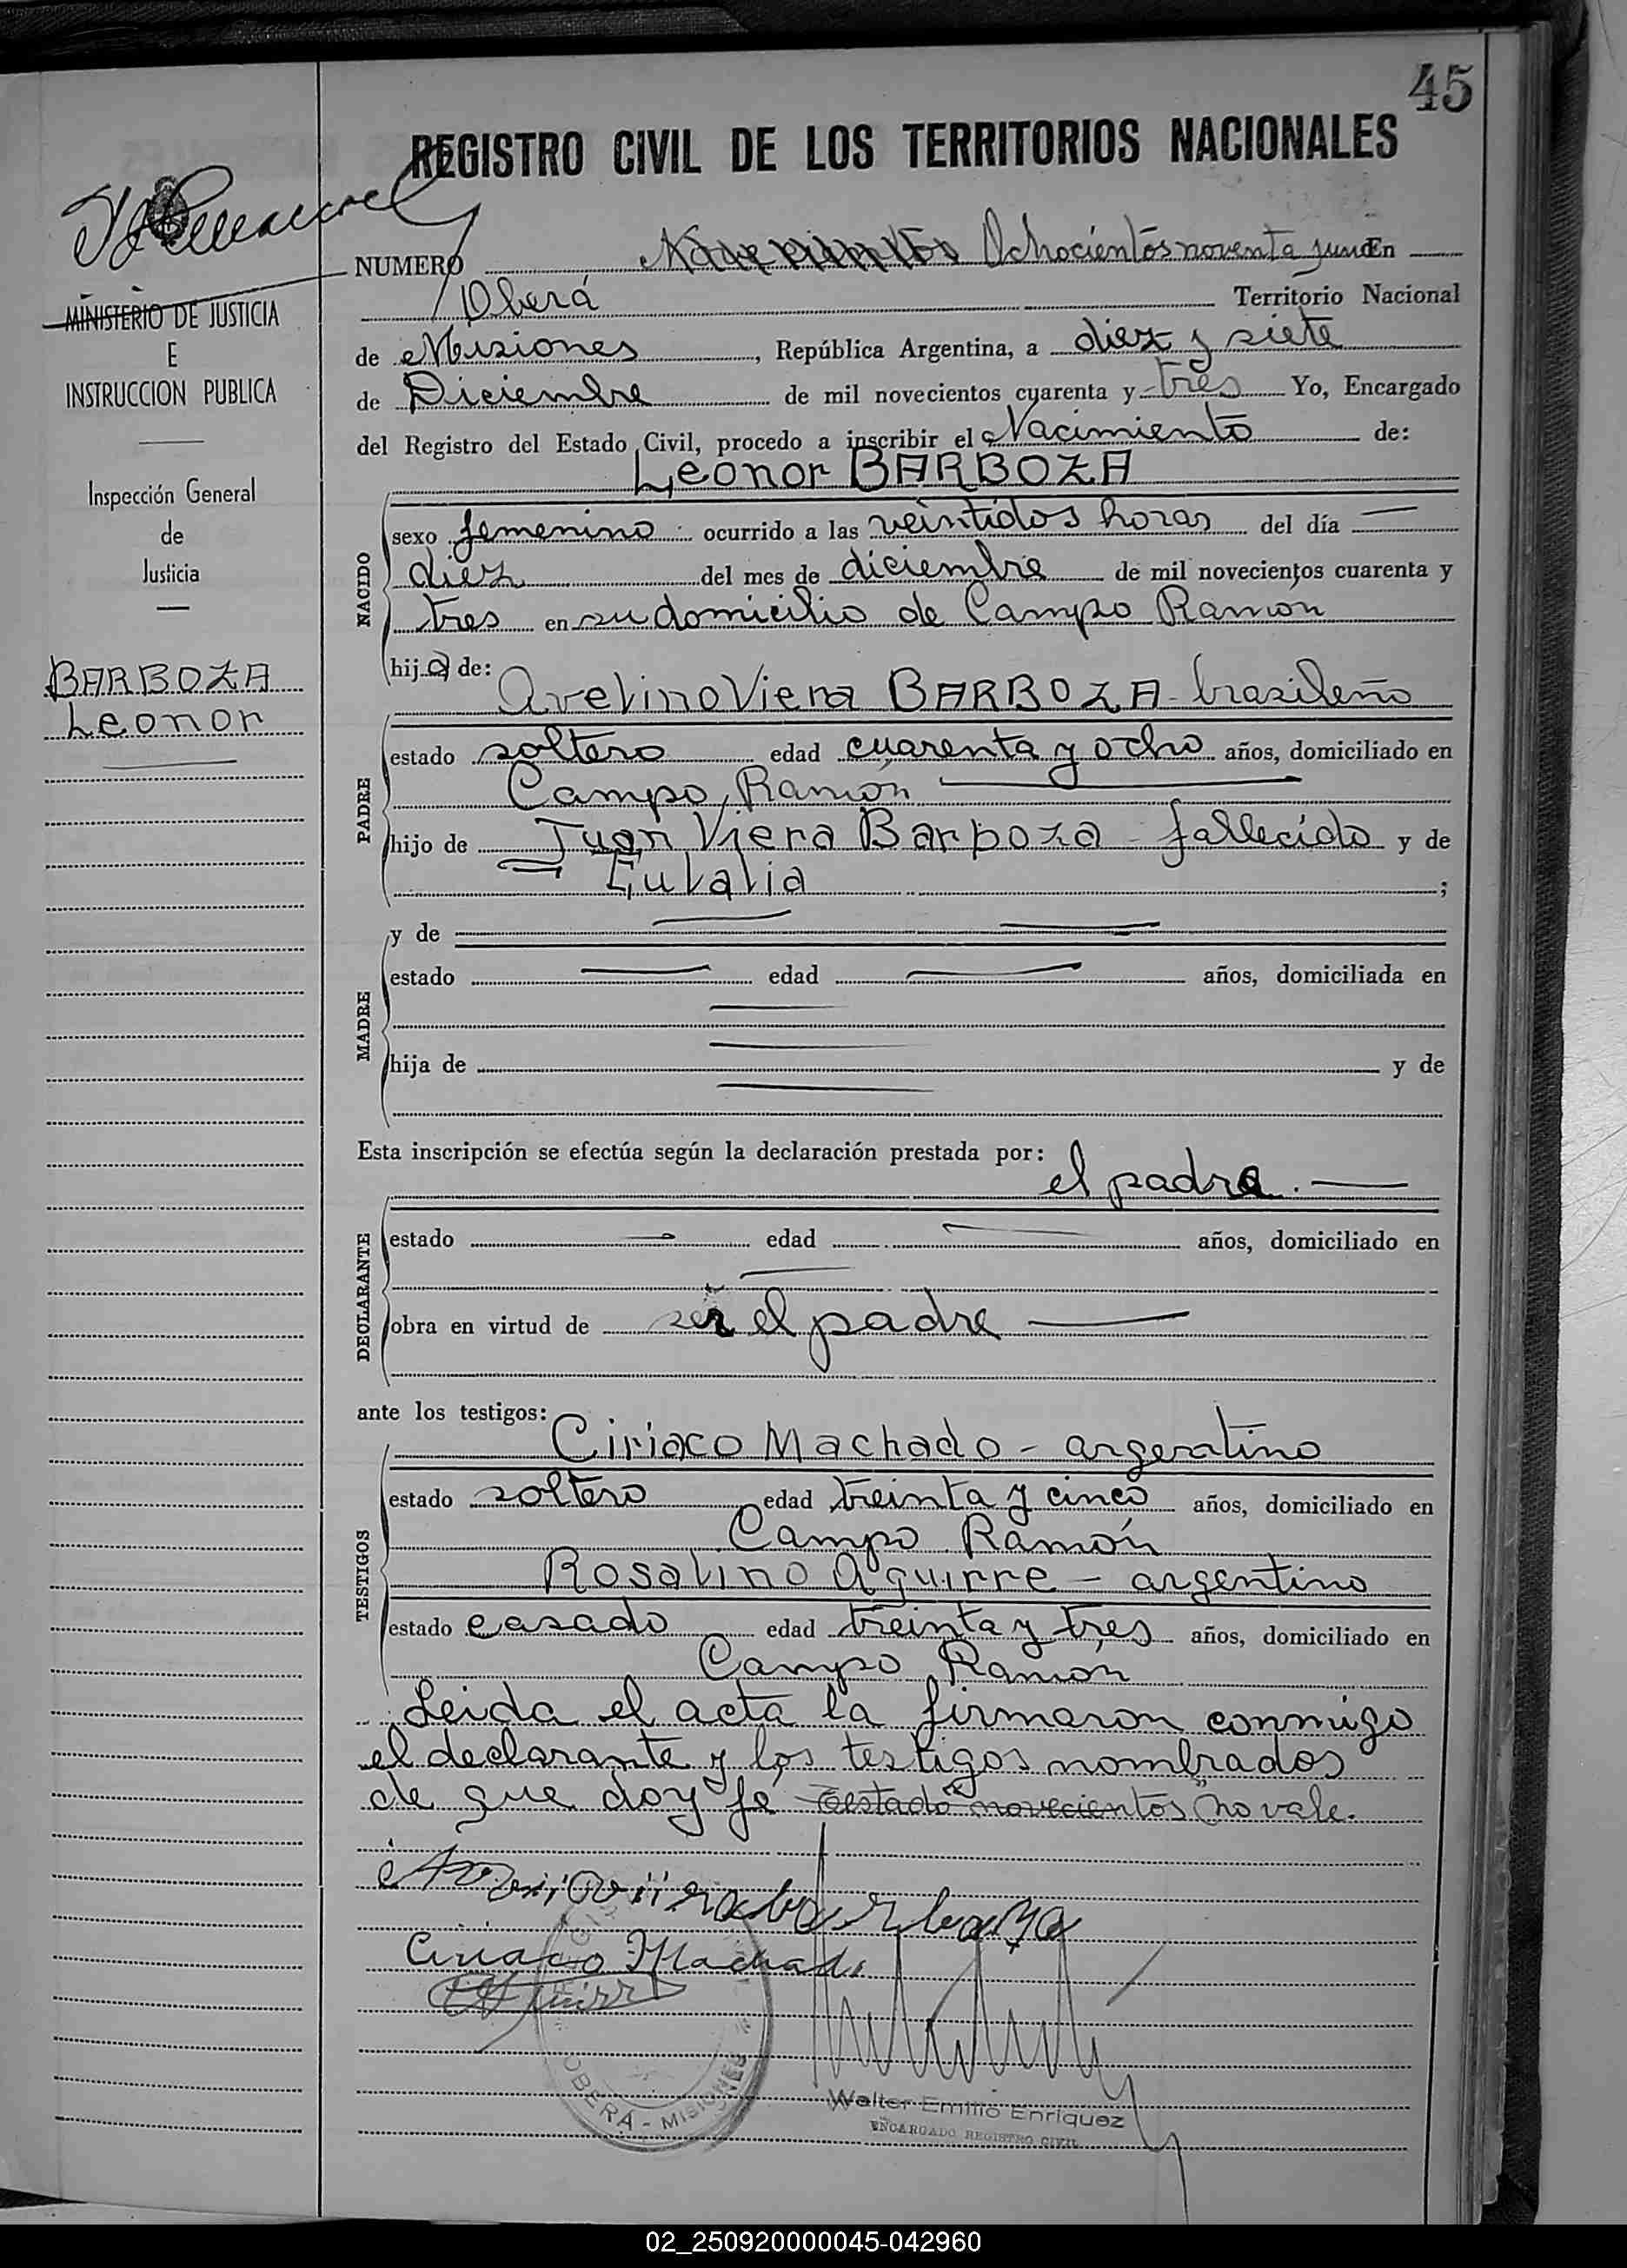 45
REGISTRO CIVIL DE LOS TERRITORIOS NACIONALES
NUMERO Ochocientos noventa y un En
Oberá Territorio Nacional
de Misiones, República Argentina, a diez y siete
de Diciembre de mil novecientos cuarenta y tres Yo, Encargado
del Registro del Estado Civil, procedo a inscribir el Nacimiento de:
Leonor BARBOZA
NACIDO
sexo femenino ocurrido a las veintidos horas del día
diez del mes de diciembre de mil novecientos cuarenta y
tres en su domicilio de Campo Ramón
hija de:
Avelino Viera BARBOZA - brasileño
PADRE
estado soltero edad cuarenta y ocho años, domiciliado en
Campo Ramón
hijo de Juan Viera Barboza - fallecido y de
Eulalia ;
MADRE
y de
estado edad años, domiciliada en
hija de y de
Esta inscripción se efectúa según la declaración prestada por:
el padre.
DECLARANTE
estado edad años, domiciliado en
obra en virtud de ser el padre
ante los testigos:
TESTIGOS
Ciriaco Machado - argentino
estado soltero edad treinta y cinco años, domiciliado en
Campo Ramón
Rosalino Aguirre - argentino
estado casado edad treinta y tres años, domiciliado en
Campo Ramón
Leida el acta la firmaron conmigo
el declarante y los testigos nombrados
de que doy fé Testado "novecientos" no vale.
Ciriaco Machado
OBERÁ - MISIONES
Walter Emilio Enriquez
ENCARGADO REGISTRO CIVIL
MINISTERIO DE JUSTICIA
E
INSTRUCCION PUBLICA
Inspección General
de
Justicia
BARBOZA
Leonor
02_250920000045-042960